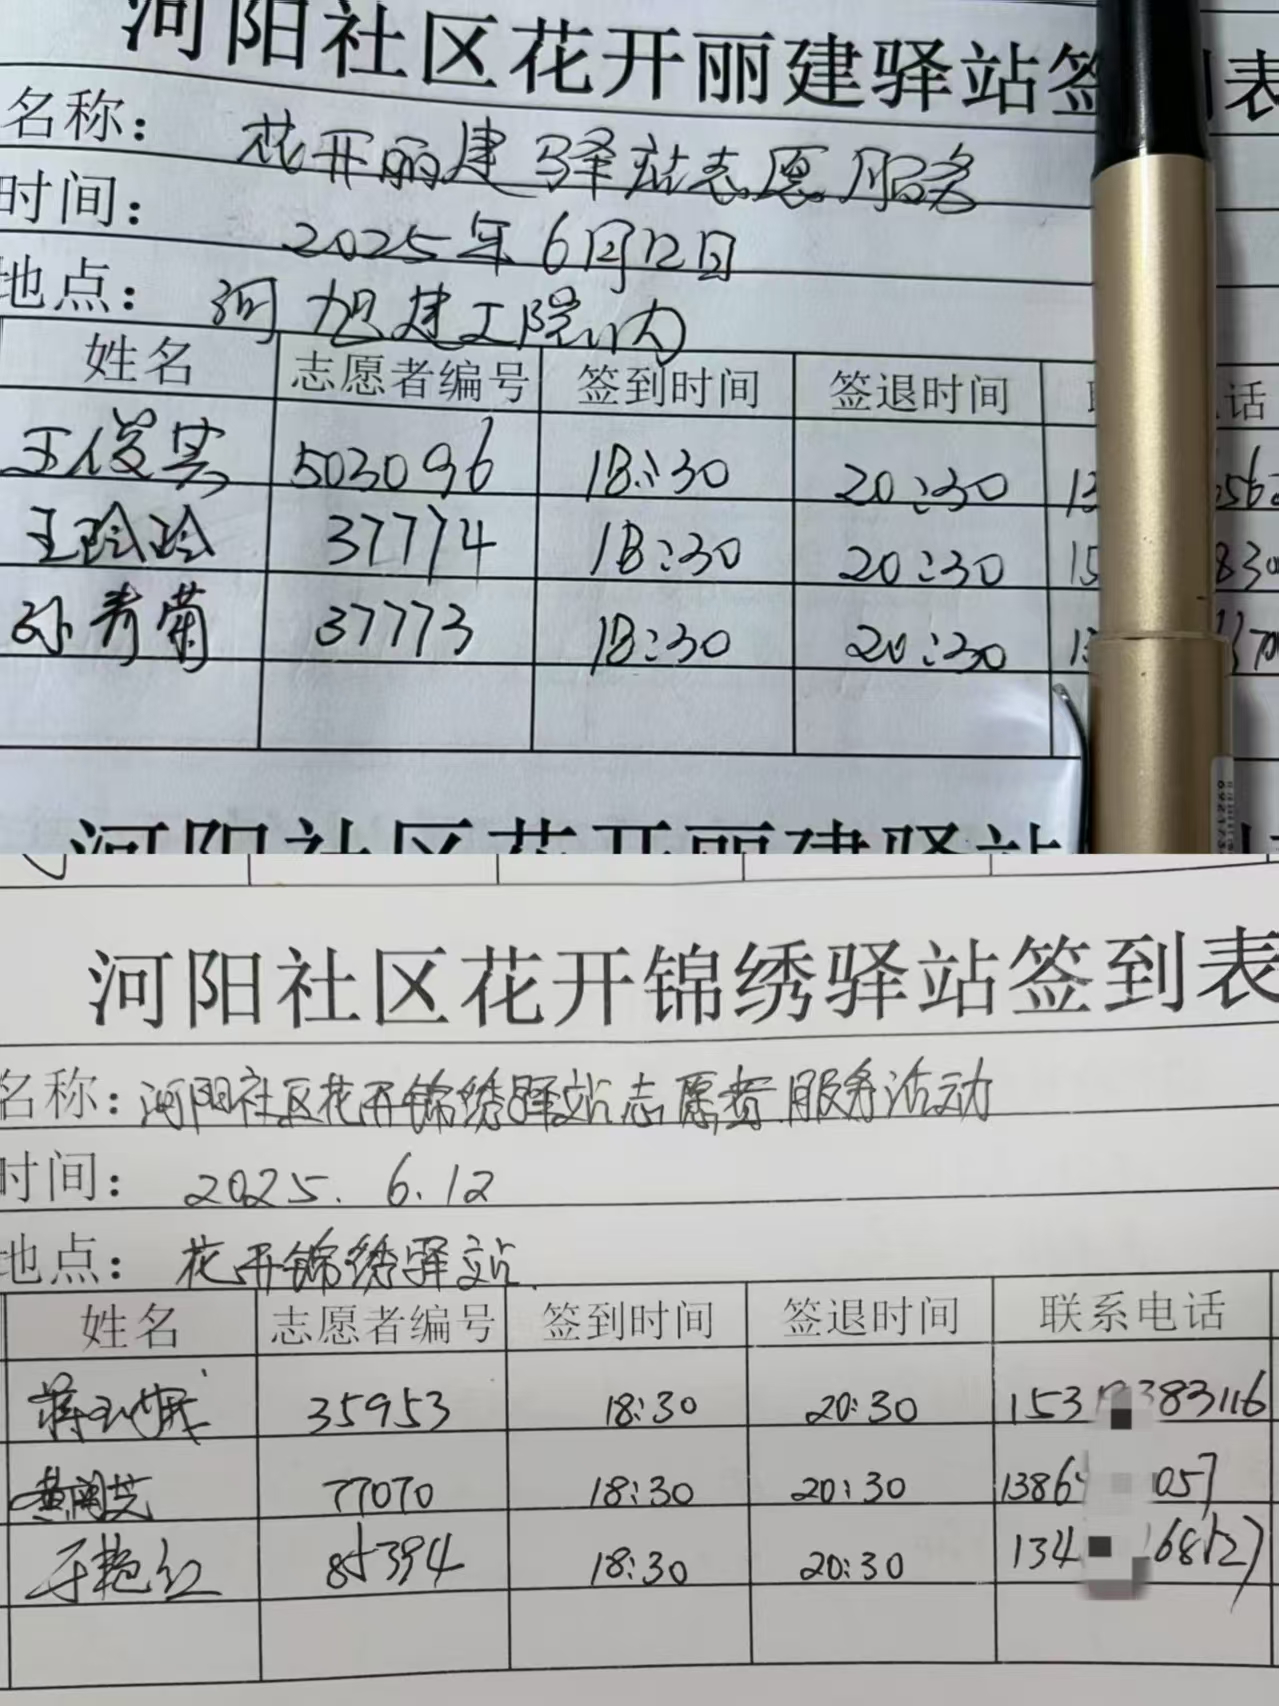 河阳社区花开丽建驿站签到表
名称： 花开丽建驿站志愿服务
时间： 2025年6月12日
地点： 河旭建工院内
姓名 志愿者编号 签到时间 签退时间 话
王俊其 503096 18:30 20:30
王玲玲 37774 18:30 20:30
孙秀菊 37773 18:30 20:30
河阳社区花开丽建驿站
河阳社区花开锦绣驿站签到表
名称：河阳社区花开锦绣驿站志愿者服务活动
时间： 2025.6.12
地点： 花开锦绣驿站
姓名 志愿者编号 签到时间 签退时间 联系电话
35953 18:30 20:30 153 383116
77070 18:30 20:30 1386 057
于艳红 85394 18:30 20:30 134 68127